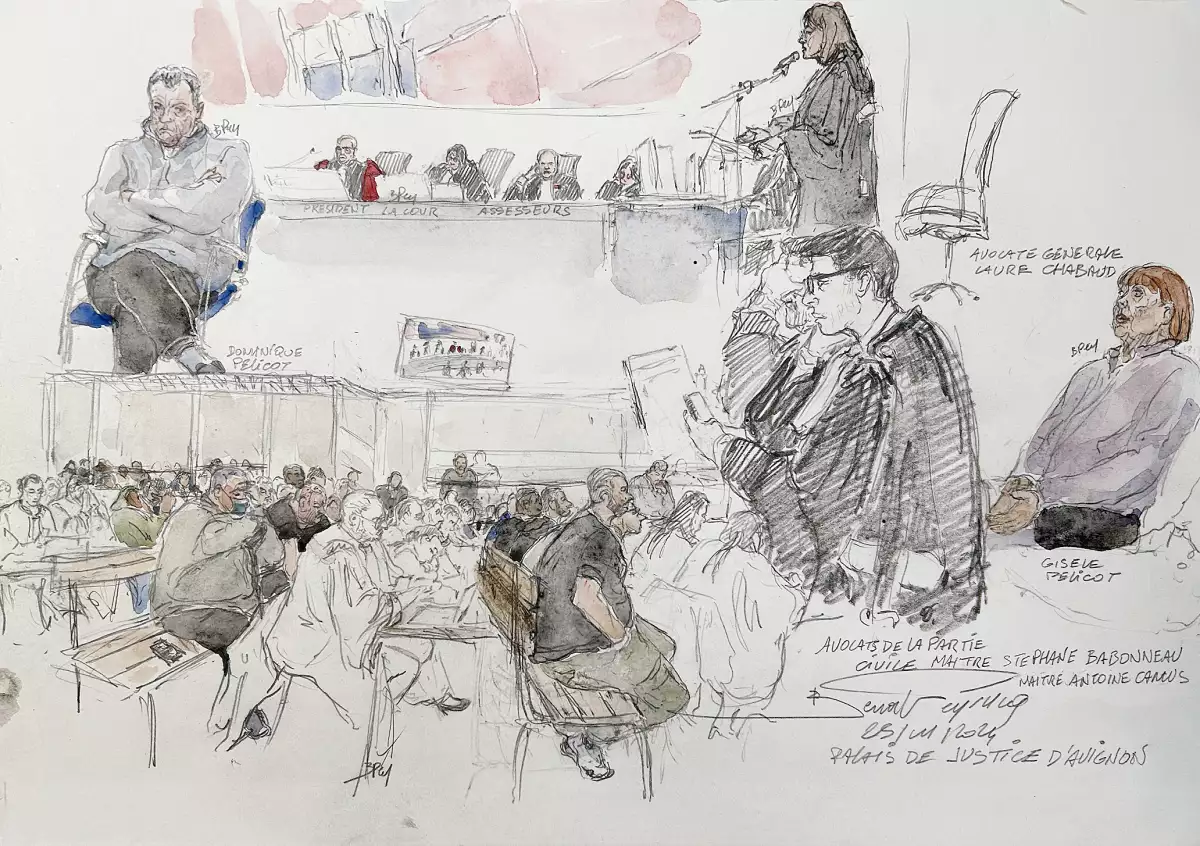 PRESIDENT LA COUR ASSESSEURS
AVOCATE GENERALE
LAURE CHABAUD
DOMINIQUE
PELICOT
GISELE
PELICOT
AVOCATS DE LA PARTIE
CIVILE MAITRE STEPHANE BABONNEAU
MAITRE ANTOINE CAMUS
PALAIS DE JUSTICE D'AVIGNON